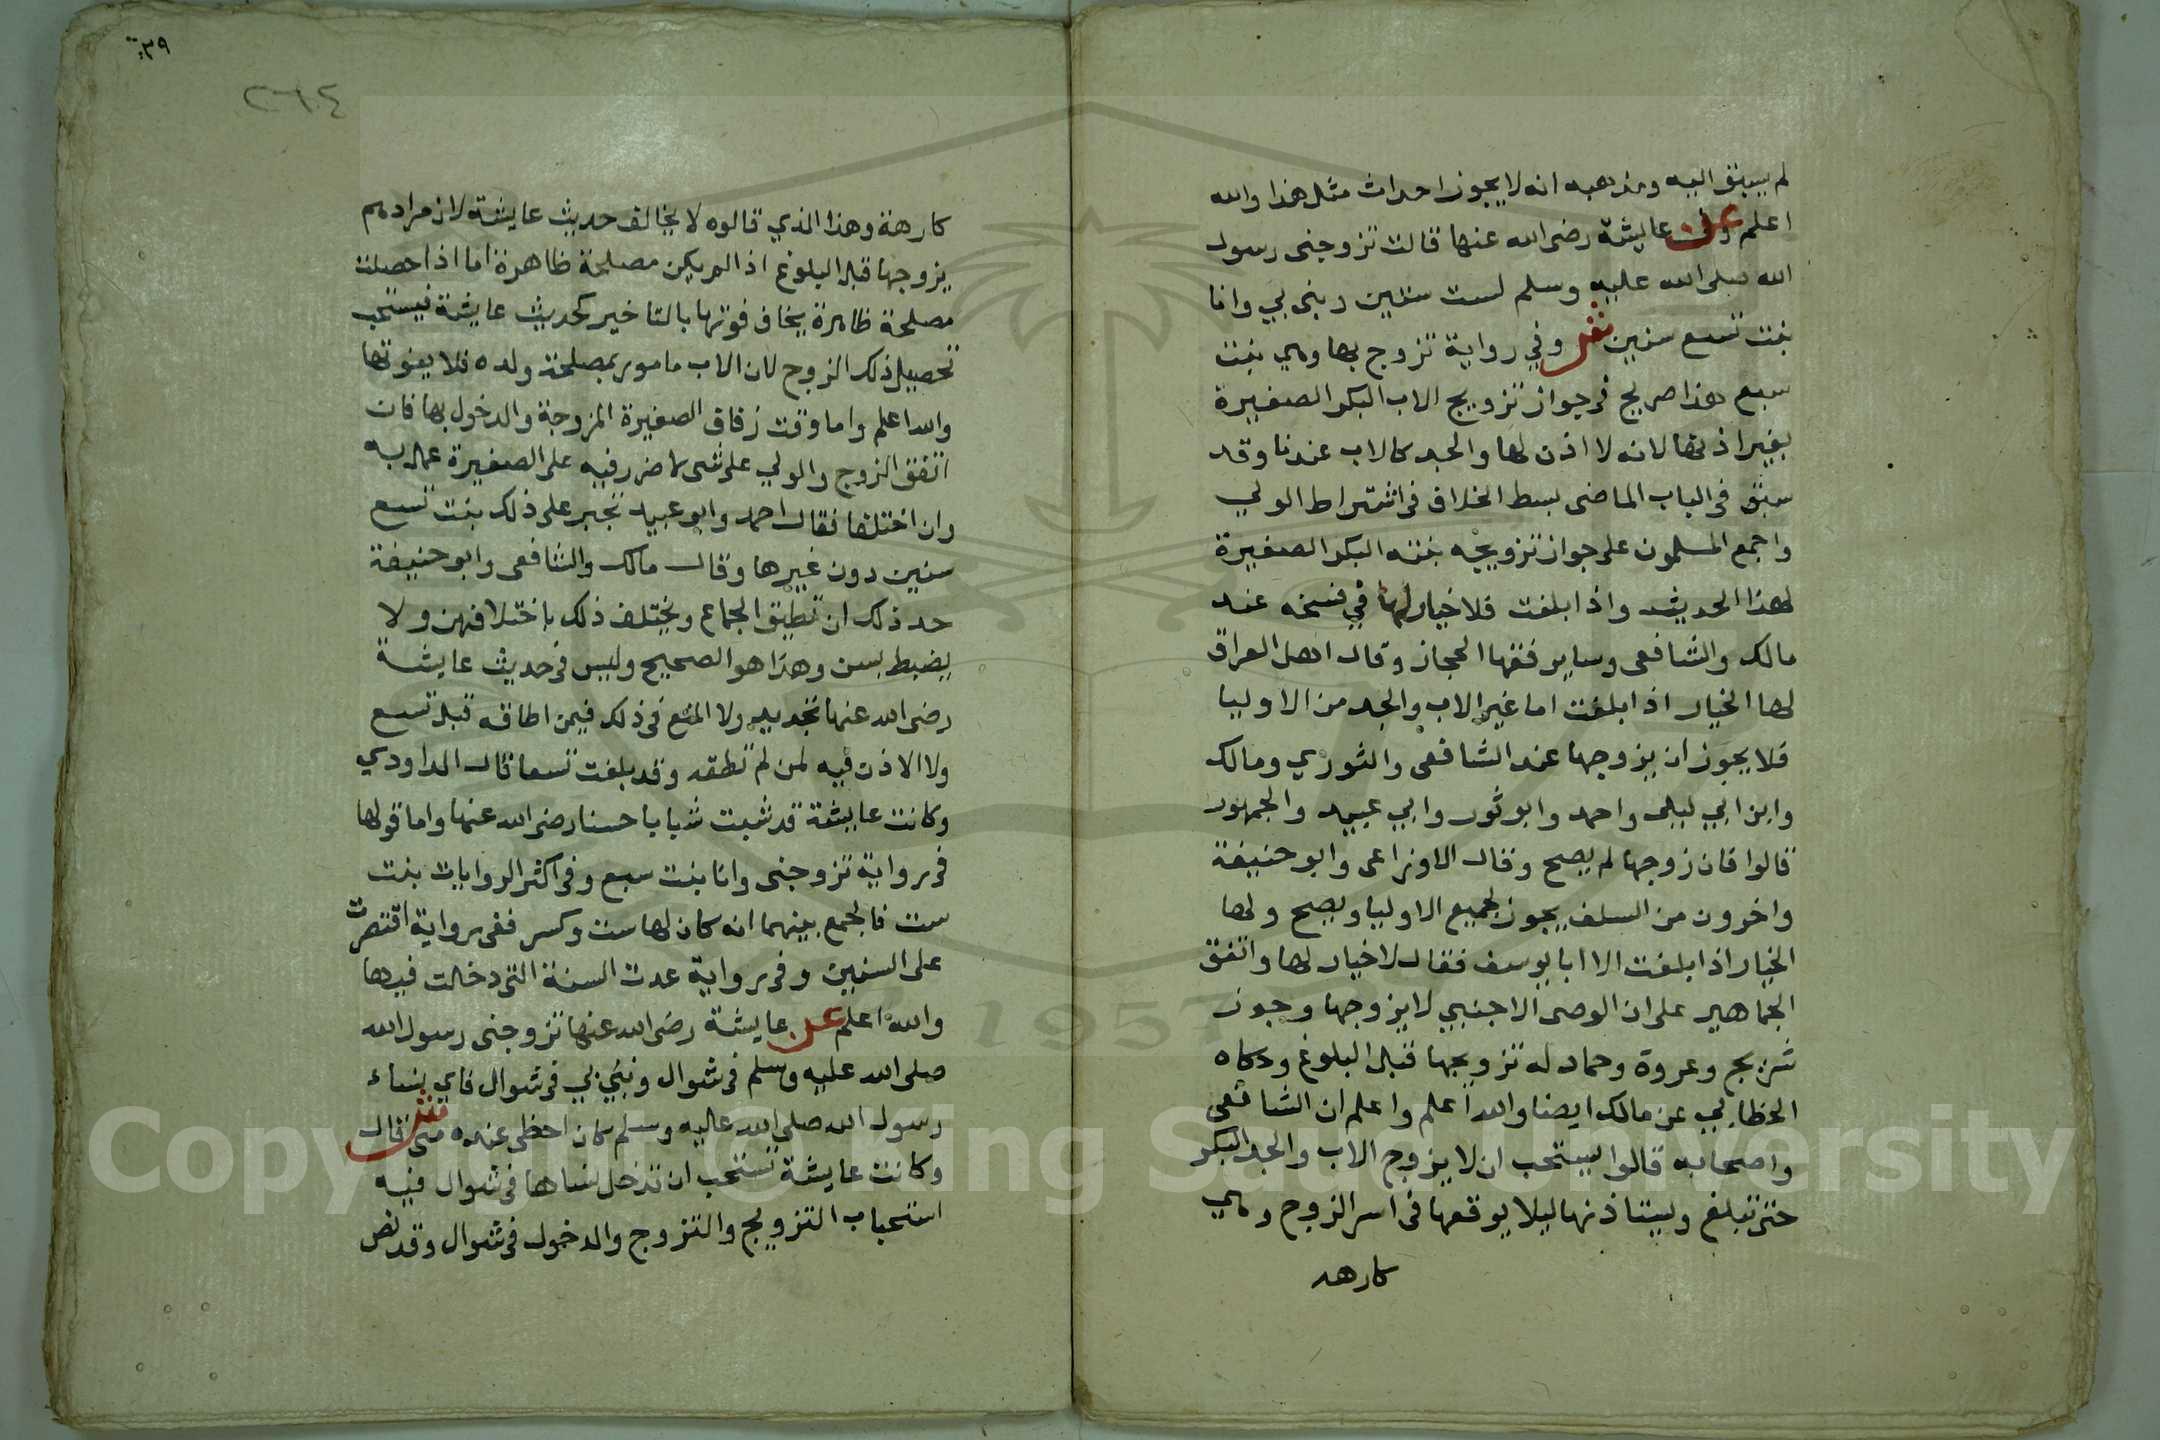 لم يسبق اليه ومذهبه انه لا يجوز احداث مثل هذا والله
اعلم عن عايشة رضى الله عنها قالت تزوجنى رسول
الله صلى الله عليه وسلم لست سنين وبنى بي وانا
بنت تسع سنين وفي رواية تزوج بها وهي بنت
سبع هذا صريح في جواز تزويج الاب البكر الصغيرة
بغير اذنها لانه لا اذن لها والجد كالاب عندنا وقد
سبق في الباب الماضى بسط الخلاف في اشتراط الولي
واجمع المسلمون على جواز تزويجه بنته البكر الصغيرة
لهذا الحديث واذا بلغت فلا خيار لها في فسخه عند
مالك والشافعى وساير فقها الحجاز وقال اهل العراق
لها الخيار اذا بلغت اما غير الاب والجد من الاوليا
فلا يجوز ان يزوجها عند الشافعى والثوري ومالك
وابن ابي ليلى واحمد وابو ثور وابي عبيد والجمهور
قالوا فان زوجها لم يصح وقال الاوزاعى وابو حنيفة
واخرون من السلف يجوز لجميع الاوليا ويصح ولها
الخيار اذا بلغت الا ابا يوسف فقال لا خيار لها واتفق
الجماهير على ان الوصى الاجنبي لا يزوجها وجوز
شريح وعروة وحماد له تزويجها قبل البلوغ وحكاه
الخطابي عن مالك ايضا والله اعلم واعلم ان الشافعى
واصحابه قالوا يستحب ان لا يزوج الاب والجد البكر
حتى تبلغ ويستاذنها ليلا يوقعها في اسر الزوج وهي
كارهه
٣٩
٢٦٤
كارهة وهذا الذي قالوه لا يخالف حديث عايشة لان مرادهم
يزوجها قبل البلوغ اذا لم يكن مصلحة ظاهرة اما اذا حصلت
مصلحة ظاهرة يخاف فوتها بالتاخير كحديث عايشة فيستحب
تحصيل ذلك الزوج لان الاب مامور بمصلحة ولده فلا يفوتها
والله اعلم واما وقت زفاف الصغيرة المزوجة والدخول بها فان
اتفق الزوج والولي على شى لا ضرر فيه على الصغيرة عمل به
وان اختلفا فقال احمد وابو عبيد تجبر على ذلك بنت تسع
سنين دون غيرها وقال مالك والشافعى وابو حنيفة
حد ذلك ان تطيق الجماع ويختلف ذلك باختلافهن ولا
يضبط بسن وهذا هو الصحيح وليس في حديث عايشة
رضى الله عنها تحديد ولا المنع في ذلك فيمن اطاقه قبل تسع
ولا الاذن فيه لمن لم تطقه وقد بلغت تسعا قال الداودي
وكانت عايشة قد شبت شبابا حسنا رضى الله عنها واما قولها
في رواية تزوجنى وانا بنت سبع وفي اكثر الروايات بنت
ست فالجمع بينهما انه كان لها ست وكسر ففى رواية اقتصرت
على السنين وفي رواية عدت السنة التى دخلت فيها
والله اعلم عن عايشة رضى الله عنها تزوجنى رسول الله
صلى الله عليه وسلم في شوال وبنى بي في شوال فاي نساء
رسول الله صلى الله عليه وسلم كان احظى عنده منى قال
وكانت عايشة تستحب ان تدخل نساها في شوال فيه
استحباب التزويج والتزوج والدخول في شوال وقد نص
1957
Copyright © King Saud University